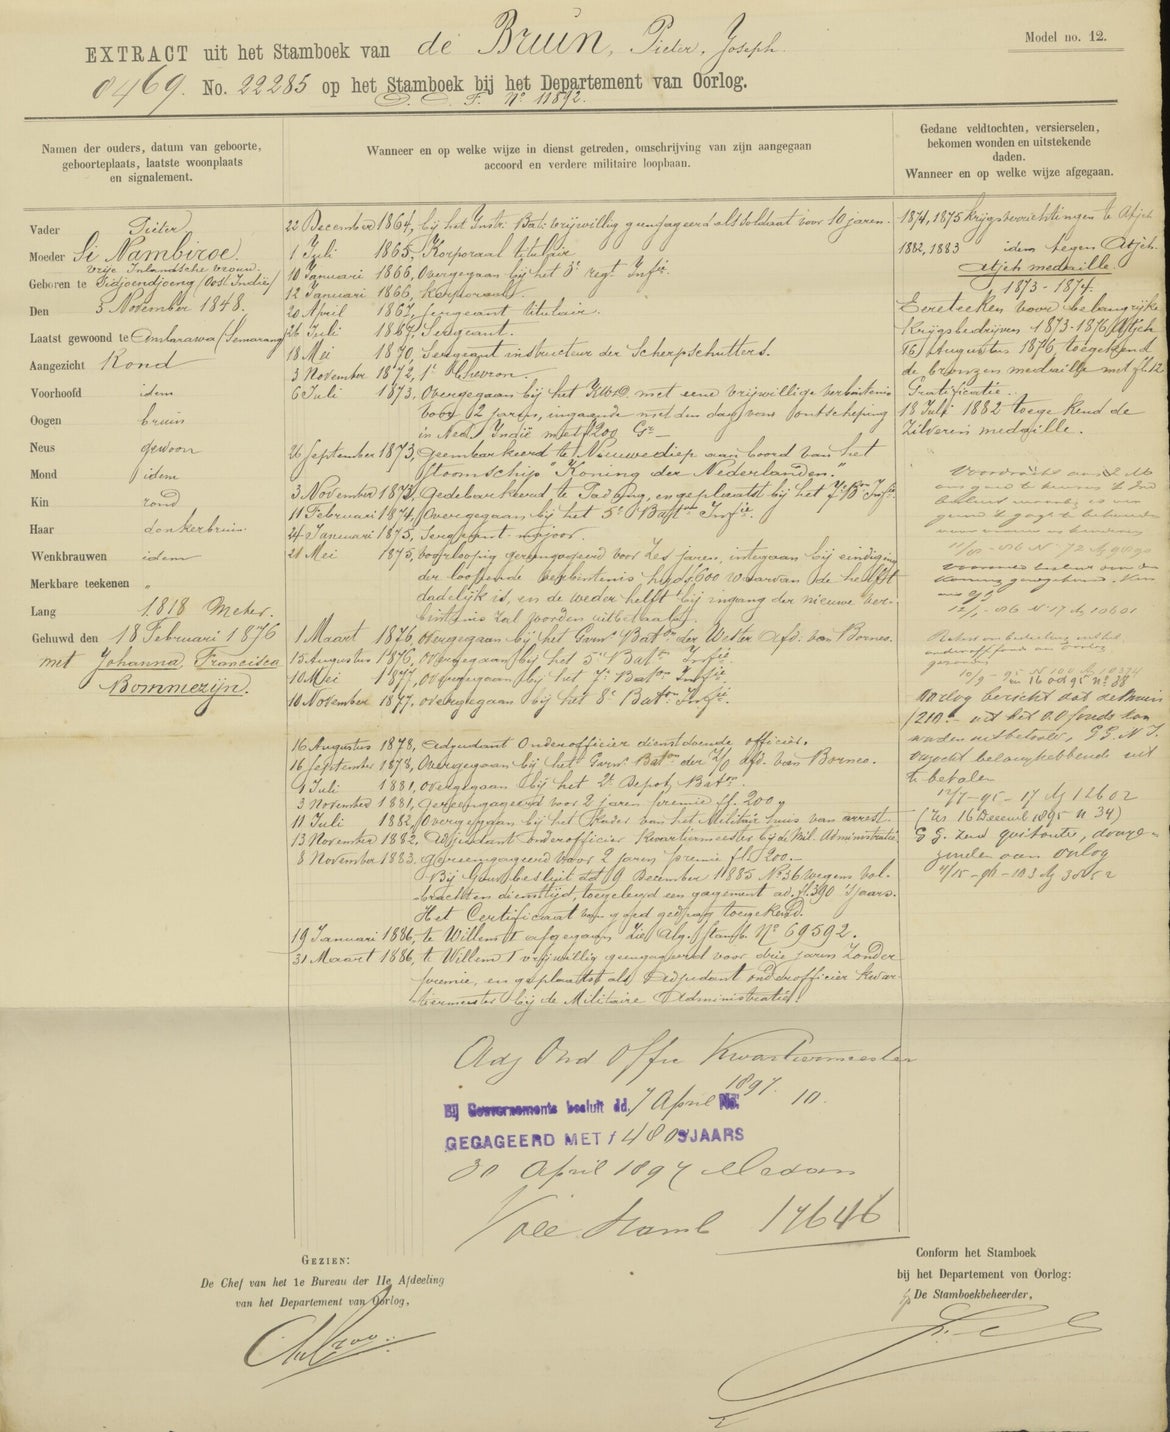 EXTRACT uit het Stamboek van de Bruin, Pieter, Joseph.
Model no. 12.
0469. No. 22285 op het Stamboek bij het Departement van Oorlog.
No 11892.
Namen der ouders, datum van geboorte,
geboorteplaats, laatste woonplaats
en signalement.
Wanneer en op welke wijze in dienst getreden, omschrijving van zijn aangegaan
accoord en verdere militaire loopbaan.
Gedane veldtochten, versierselen,
bekomen wonden en uitstekende
daden.
Wanneer en op welke wijze afgegaan.
Vader Pieter
Moeder Si Nambiroe.
vrije Inlandsche vrouw.
Geboren te Tidjoendjoeng (Oost Indië)
Den 3 November 1848.
Laatst gewoond te Ambarawa (Semarang
Aangezicht Rond
Voorhoofd idem
Oogen bruin
Neus gewoon
Mond idem
Kin rond
Haar donkerbruin
Wenkbrauwen idem
Merkbare teekenen "
Lang 1.818 Meter.
Gehuwd den 18 Februari 1876
met Johanna Francisca
Bommezijn.
22 December 1864, bij het Instr. Bat: vrijwillig geëngageerd als soldaat voor 10 jaren.
1 Juli 1865, Korporaal titulair.
10 Januari 1866, Overgegaan bij het 5e regt Infie.
12 Januari 1866, Korporaal.
20 April 1867, Sergeant titulair.
26 Juli 1867, Sergeant.
18 Mei 1870, Sergeant instructeur der Scherpschutters.
3 November 1872, 1e Chevron.
6 Juli 1873, Overgegaan bij het met eene vrijwillige verbintenis
voor 2 jaren, ingaande met den dag van ontscheping
in Ned. Indië met ƒ200 Gr.
26 September 1873, Geembarkeerd te Nieuwediep aan boord van het
Stoomschip "Koning der Nederlanden."
3 November 1873, Gedebarkeerd te Padang, en geplaatst bij het 7e Bon Infie.
11 Februari 1874, Overgegaan bij het 5e Baton Infie.
24 Januari 1875, Sergeant-majoor.
21 Mei 1875, voorloopig gereëngageerd voor zes jaren, integaan bij eindiging
der loopende verbintenis hand ƒ600 waarvan de helft
dadelijk is, en de weder helft bij ingang der nieuwe ver-
bintenis zal worden uitbetaald.
1 Maart 1876, overgegaan bij het Garns Baton der Wester Afd. van Borneo.
15 Augustus 1876, overgegaan bij het 5e Baton Infie.
10 Mei 1877, overgegaan bij het 7e Baton Infie.
10 November 1877, overgegaan bij het 8e Baton Infie.
16 Augustus 1878, adjudant Onderofficier dienstdoende officier.
16 September 1878, Overgegaan bij het Garns Baton der Z/O afd. van Borneo.
1 Juli 1881, overgegaan bij het 2e Depot Baton.
3 November 1881, gereëngageerd voor 2 jaren premie fl. 200,
11 Juli 1882, Overgegaan bij het Kader van het Militair huis van arrest.
13 November 1882, Adjudant onderofficier Kwartiermeester bij de Mil. Administratie
8 November 1883, gereëngageerd voor 2 jaren premie fl. 200.-
Bij Gouv. besluit dd 9 December 1885 No 36 wegens vol-
brachten diensttijd, toegelegd een gagement ad. fl. 390 'sjaars.
Het Certificaat van goed gedrag toegekend.
19 Januari 1886, te Willem I afgegaan zie Alg. Stamb. No 69592.
31 Maart 1886, te Willem I vrijwillig geengageerd voor drie jaren zonder
premie, en geplaatst als Adjudant onderofficier Kwar-
tiermeester bij de Militaire Administratie.
Adj Ond Offr Kwartiermeester
Bij Gouvernements besluit dd. 7 April 1897. No. 10.
GEGAGEERD MET ƒ 480 'SJAARS
30 April 1897 Medan
Stamb 17646
1874, 1875 Krijgsverrichtingen te Atjeh
1882, 1883 idem tegen Atjeh.
Atjeh medaille.
1873 - 1874.
Eereteeken voor belangrijke
Krijgsbedrijven 1873-1876 (Atjeh
16 Augustus 1876 toegekend
de bronzen medaille met fl. 12
Gratificatie.
18 Juli 1882 toegekend de
Zilveren medaille.
16 oct 95 no 38
Oorlog bericht dat
ƒ 210.- uit het fonds kan
worden uitbetaald,
verzocht belanghebbende uit
te betalen
12/7-95-17 12602
(Zie 16 Decemb 1895 n 34)
zend quitantie, doorge-
zonden aan Oorlog
Gezien:
De Chef van het 1e Bureau der IIe Afdeeling
van het Departement van Oorlog,
Conform het Stamboek
bij het Departement von Oorlog:
De Stamboekbeheerder,